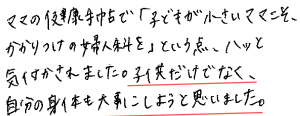 ママの健康手帖で「子どもが小さいママこそ、
かかりつけの婦人科を」という点、ハッと
気付かされました。子供だけでなく、
自分の身体も大事にしようと思いました。